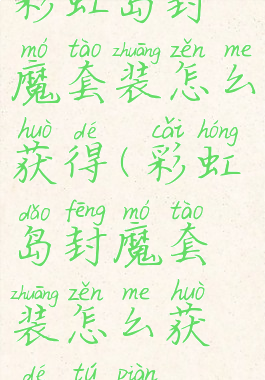 彩虹岛封
mó tào zhuāng zěn me
魔套装怎么
huò dé cǎi hóng
获得(彩虹
dǎo fēng mó tào
岛封魔套
zhuāng zěn me huò
装怎么获
dé tú piàn